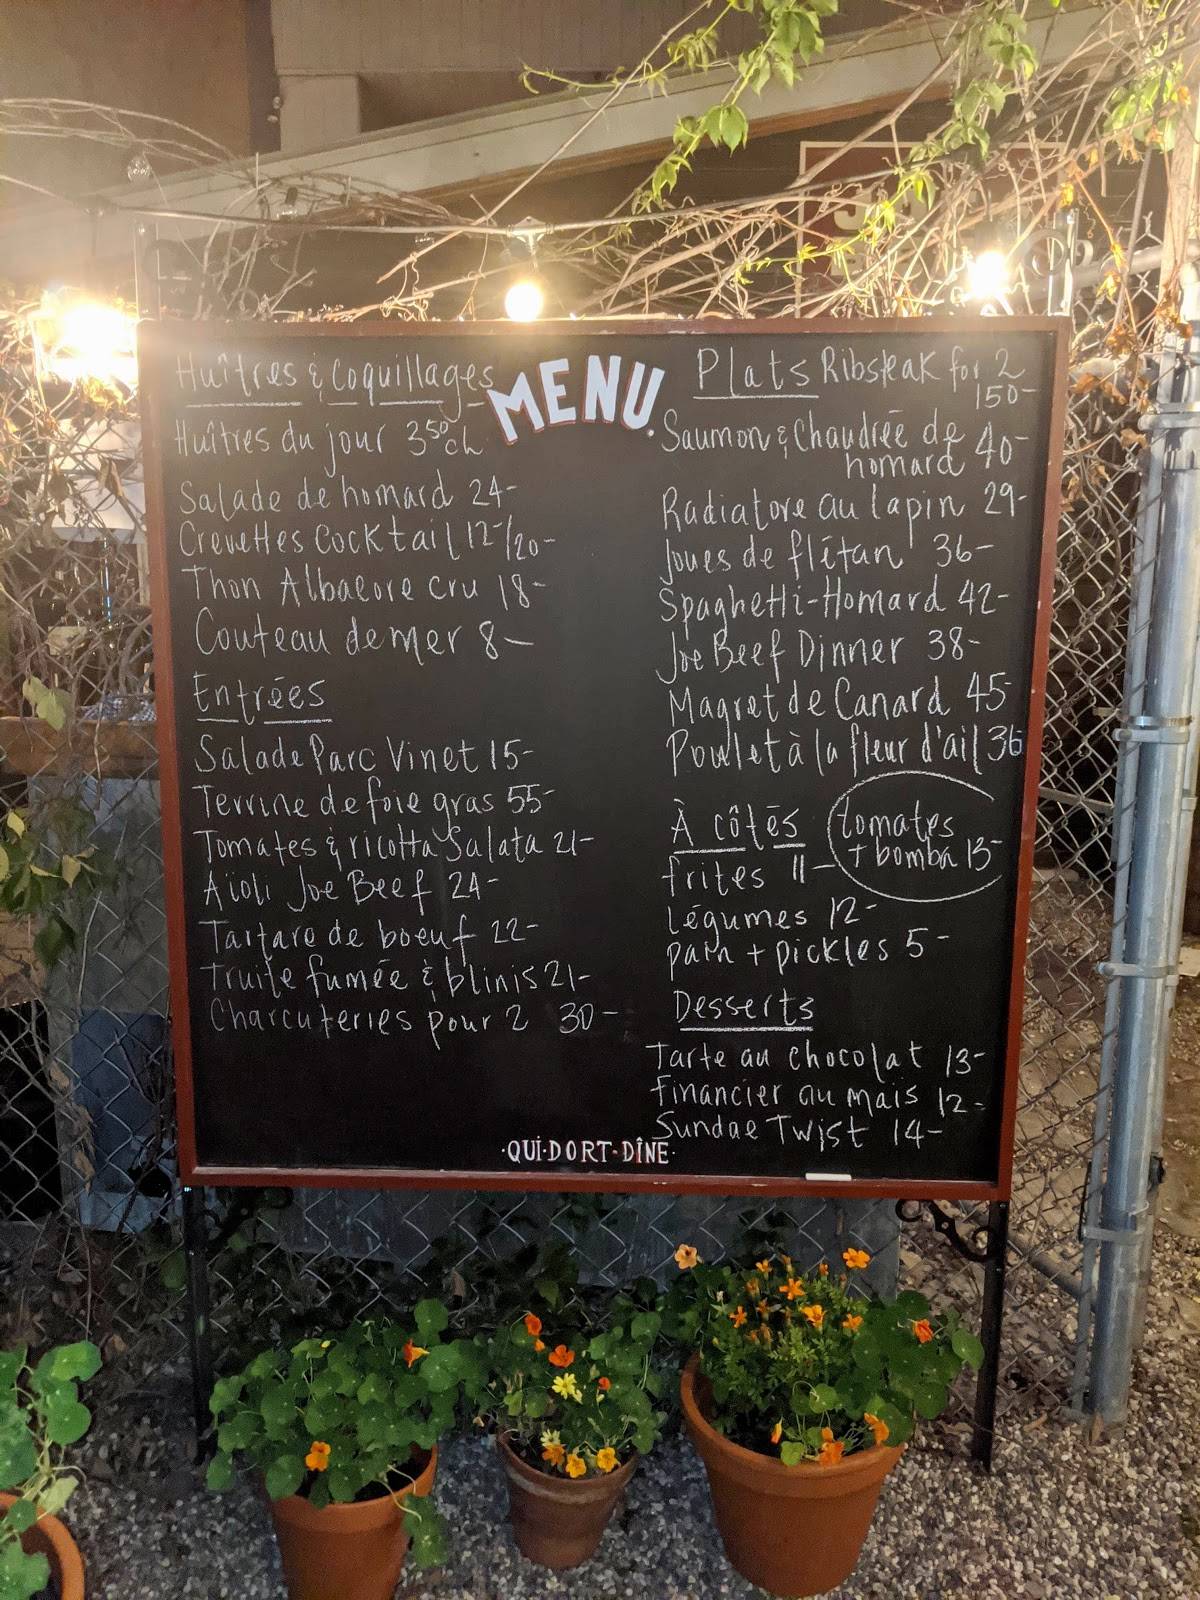 MENU.
Huîtres & coquillages
Huîtres du jour 3.50 ch
Salade de homard 24-
Crevettes Cocktail 12-/20-
Thon Albacore cru 18-
Couteau de mer 8-
Entrées
Salade Parc Vinet 15-
Terrine de foie gras 55-
Tomates & ricotta Salata 21-
Aïoli Joe Beef 24-
Tartare de boeuf 22-
Truite fumée & blinis 21-
Charcuteries pour 2 30-
Plats Ribsteak for 2
150-
Saumon & Chaudrée de
homard 40-
Radiatore au lapin 29-
Joues de flétan 36-
Spaghetti-Homard 42-
Joe Beef Dinner 38-
Magret de Canard 45-
Poulet à la fleur d'ail 36
À côtés
tomates
+ bomba 13-
frites 11-
Légumes 12-
pain + pickles 5-
Desserts
Tarte au chocolat 13-
Financier au maïs 12-
Sundae Twist 14-
·QUI·DORT·DÎNE·